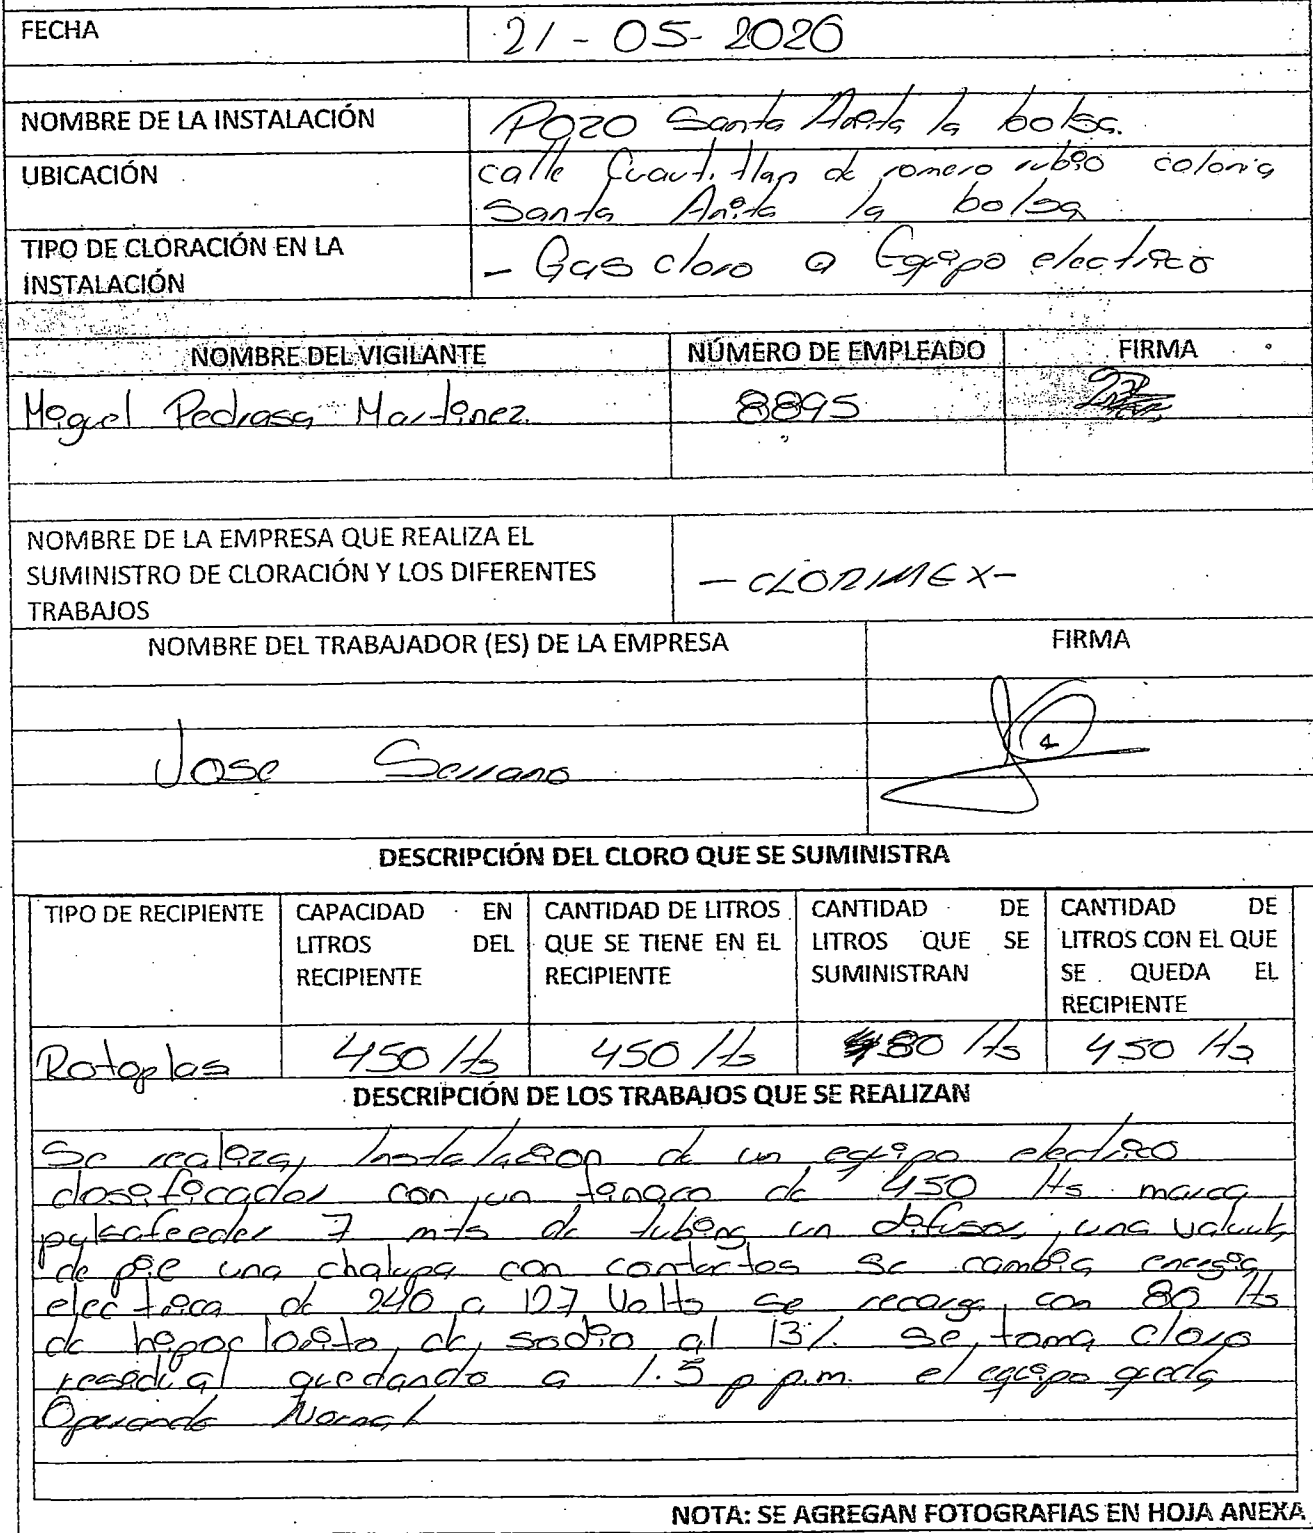 FECHA 21 - 05- 2020
NOMBRE DE LA INSTALACIÓN Pozo Santa Anita la bolsa.
UBICACIÓN calle Cuautitlan de romero rubio colonia
Santa Anita la bolsa
TIPO DE CLORACIÓN EN LA
INSTALACIÓN - Gas cloro a Equipo electrico
NOMBRE DEL VIGILANTE NÚMERO DE EMPLEADO FIRMA
Miguel Pedrasa Martinez 8895
NOMBRE DE LA EMPRESA QUE REALIZA EL
SUMINISTRO DE CLORACIÓN Y LOS DIFERENTES
TRABAJOS
- CLORIMEX-
NOMBRE DEL TRABAJADOR (ES) DE LA EMPRESA FIRMA
Jose Serrano
DESCRIPCIÓN DEL CLORO QUE SE SUMINISTRA
TIPO DE RECIPIENTE
CAPACIDAD EN
LITROS DEL
RECIPIENTE
CANTIDAD DE LITROS
QUE SE TIENE EN EL
RECIPIENTE
CANTIDAD DE
LITROS QUE SE
SUMINISTRAN
CANTIDAD DE
LITROS CON EL QUE
SE QUEDA EL
RECIPIENTE
Rotoplas 450 lts 450 lts 80 lts 450 lts
DESCRIPCIÓN DE LOS TRABAJOS QUE SE REALIZAN
Se realiza, Instalacion de un equipo electrico
dosificador con un tinaco de 450 lts marca
pulsafeeder 7 mts de tubing un difusor, una valvula
de pie una chalupa con contactos se cambia energia
electrica de 240 a 127 Volts se recarga con 80 lts
de hipoclorito de sodio al 13% se toma cloro
residual quedando a 1.5 p.p.m. el equipo queda
Operando Normal
NOTA: SE AGREGAN FOTOGRAFIAS EN HOJA ANEXA